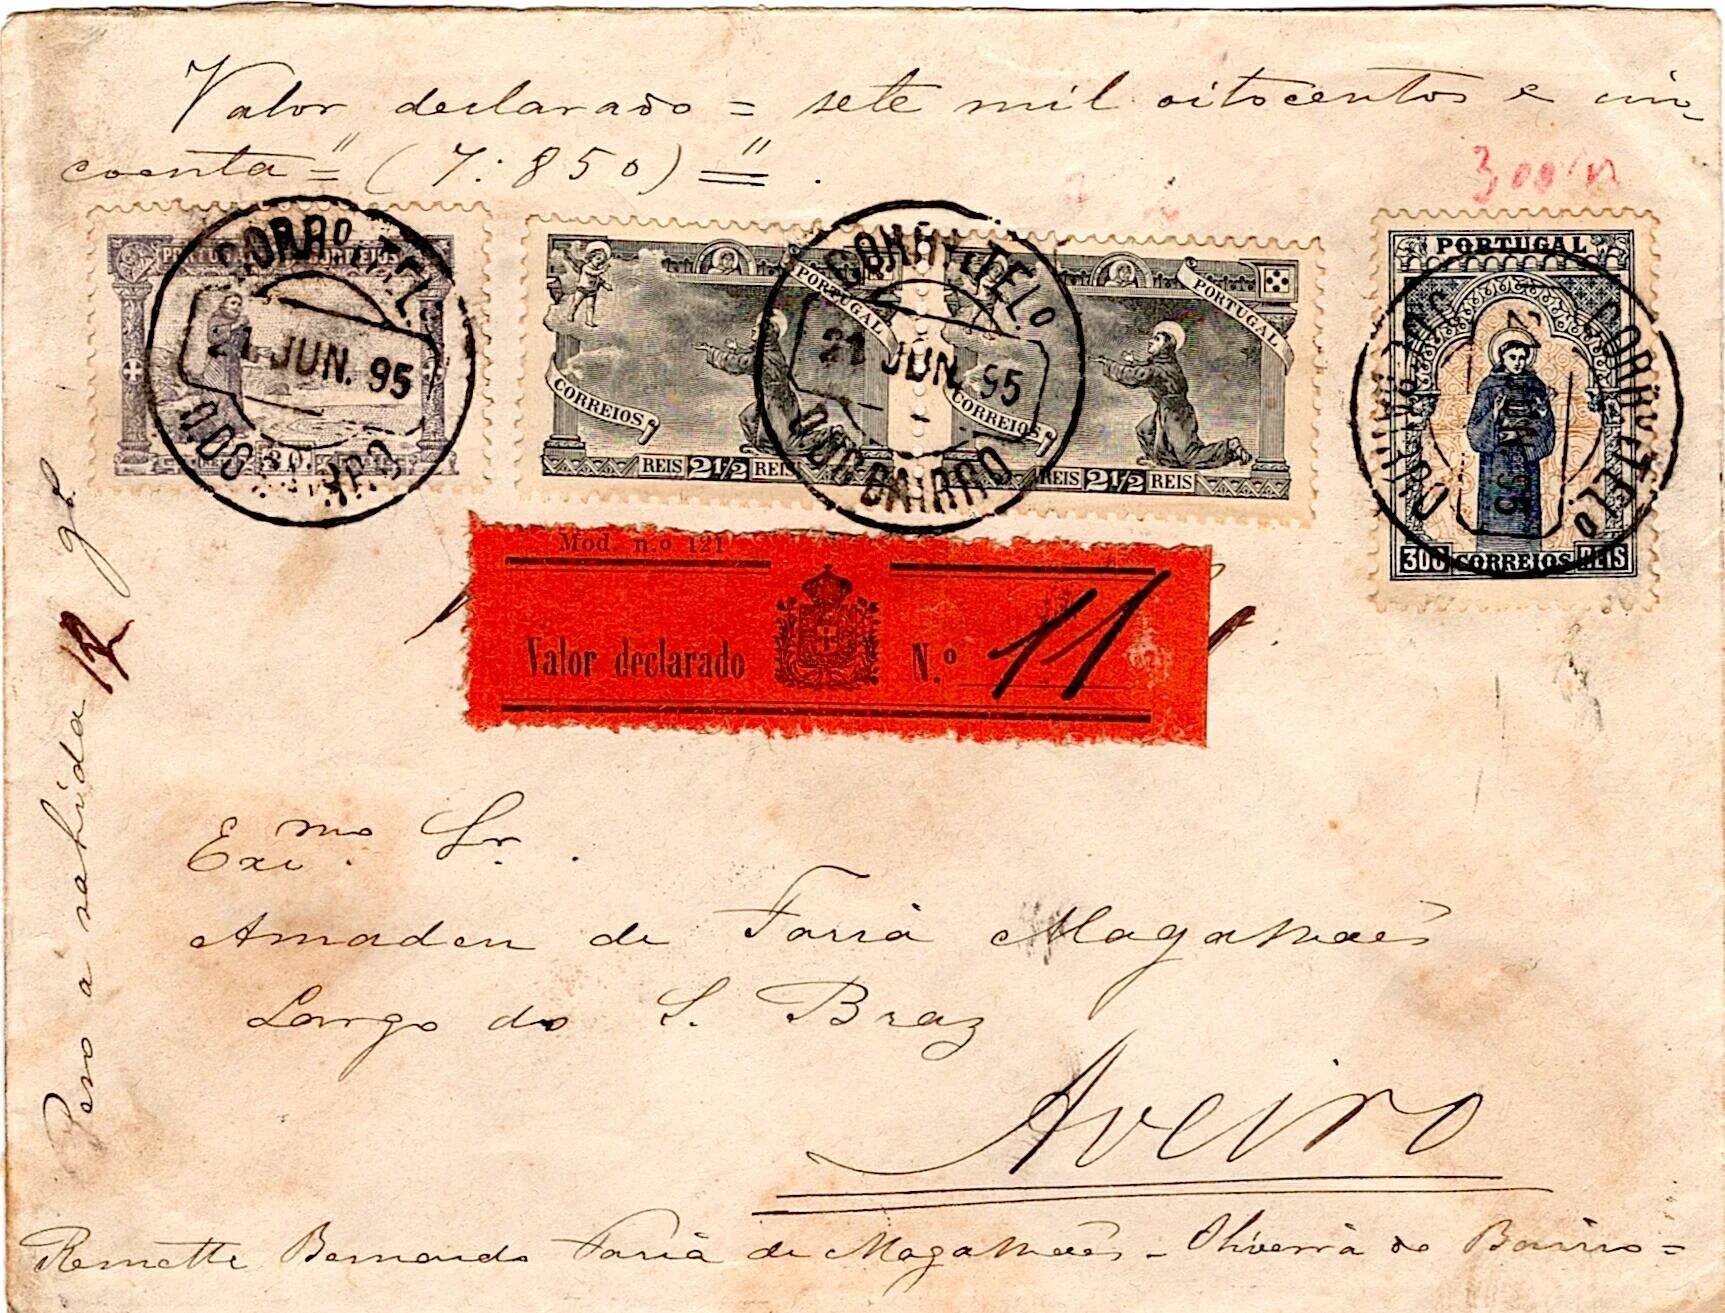 Valor declarado = sete mil oitocentos e cin-
coenta = " (7:850) = " .
3,00
PORTUGAL CORREIOS
CORRO TEL
21 JUN. 95
80
PORTUGAL
CORREIOS
REIS 2 1/2 REIS
PORTUGAL
CORREIOS
REIS 2 1/2 REIS
CORRO TELO
21 JUN. 95
DO BAIRRO
PORTUGAL
300 CORREIOS REIS
Mod. n.o 121
Valor declarado N.o 11
Peso a sahida 12 gr.
Exmo. Sr.
Amadeu de Faria Magalhaẽs
Largo do S. Braz
Aveiro
Remette Bernardo Faria de Magalhaẽs - Oliveira do Bairro =